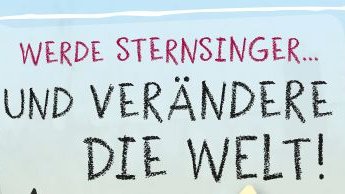 WERDE STERNSINGER...
UND VERÄNDERE
DIE WELT!